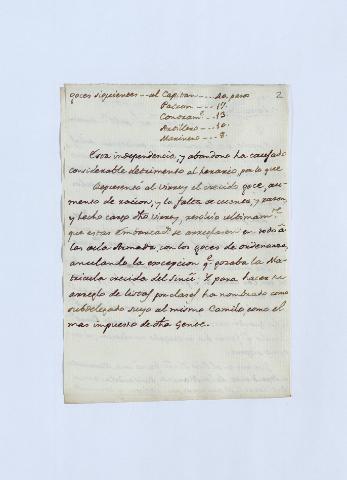 goces siguientes --- al Capitan ---- 20. pesos 2
Patron --- 17.
Contram.e --- 13.
Artillero --- 10.
Marinero --- 8.
Esta independencia, y abandono ha causado
considerable detrimento al herario, por lo que
Representó al virrey el crecido goce, au-
mento de racion, y la falta de cuenta, y razon,
y hecho cargo dho virrey, resolvio ultimam.te
que estas Embarcac.s se arreglasen en todo á
las de la Armada, con los goces de ordenanza,
anulando la excepcion q.e gozaba la Ma-
tricula crecida del
Y para hacer su
arreglo de listas por clases ha nombrado como
subdelegado suyo al mismo Camilo como el
mas impuesto de dha Gente.